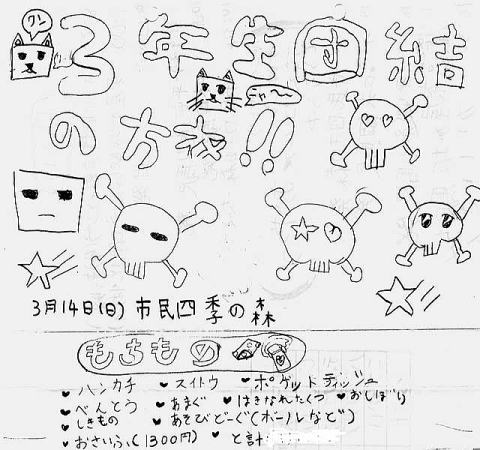 ワン
3年生団結
ニャ〜
の方校!!
3月14日(日) 市民四季の森
もちもの
♥ハンカチ ♥スイトウ ♥ポケットティッシュ
♥べんとう ♥あまぐ ♥はきなれたくつ ♥おしぼり
♥しきもの ♥あそびどーぐ(ボールなど)
♥おさいふ(1300円) ♥と計